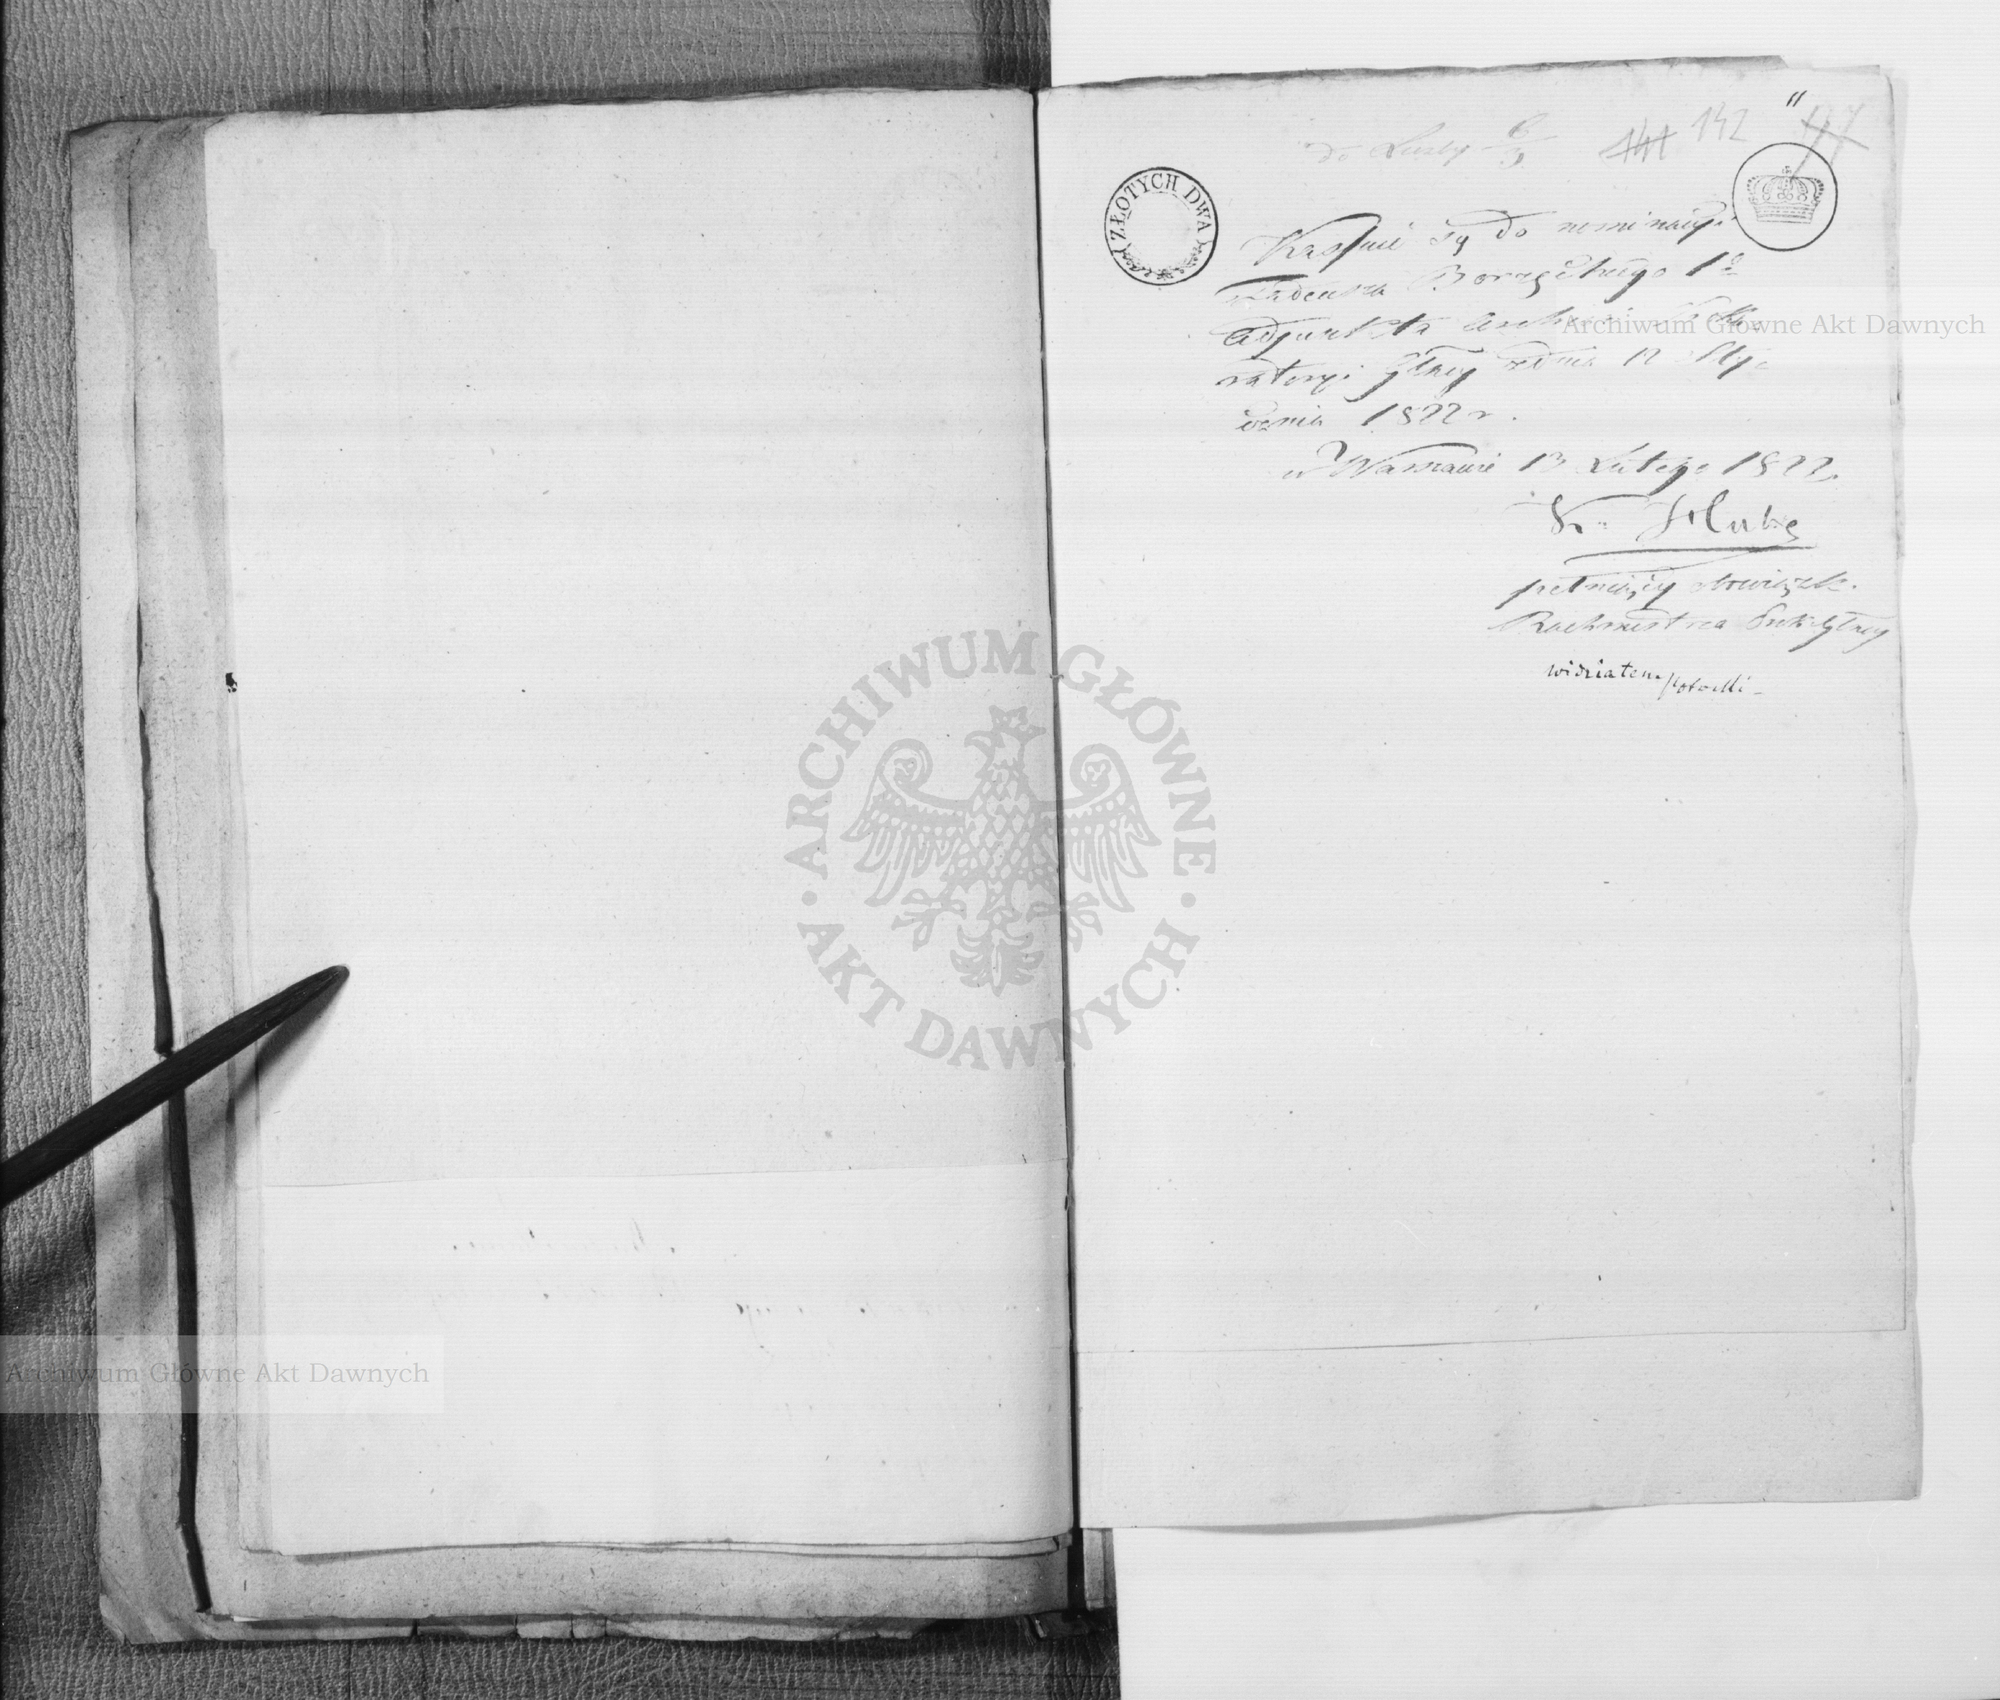 do Liczby 6/3 141 142 117
ZŁOTYCH DWA
Kassuie się do nominacyi
Tadeusza Borzęckiego 1o
Adjunkta
Głney z dnia 12 Sty-
cznia 1822 r.
w Warszawie 13 Lutego 1822.
K. Hube
pełniący obowiązek
Rachmistrza Głney
widziałem Potocki
Archiwum Główne Akt Dawnych
ARCHIWUM GŁÓWNE
AKT DAWNYCH
Archiwum Główne Akt Dawnych